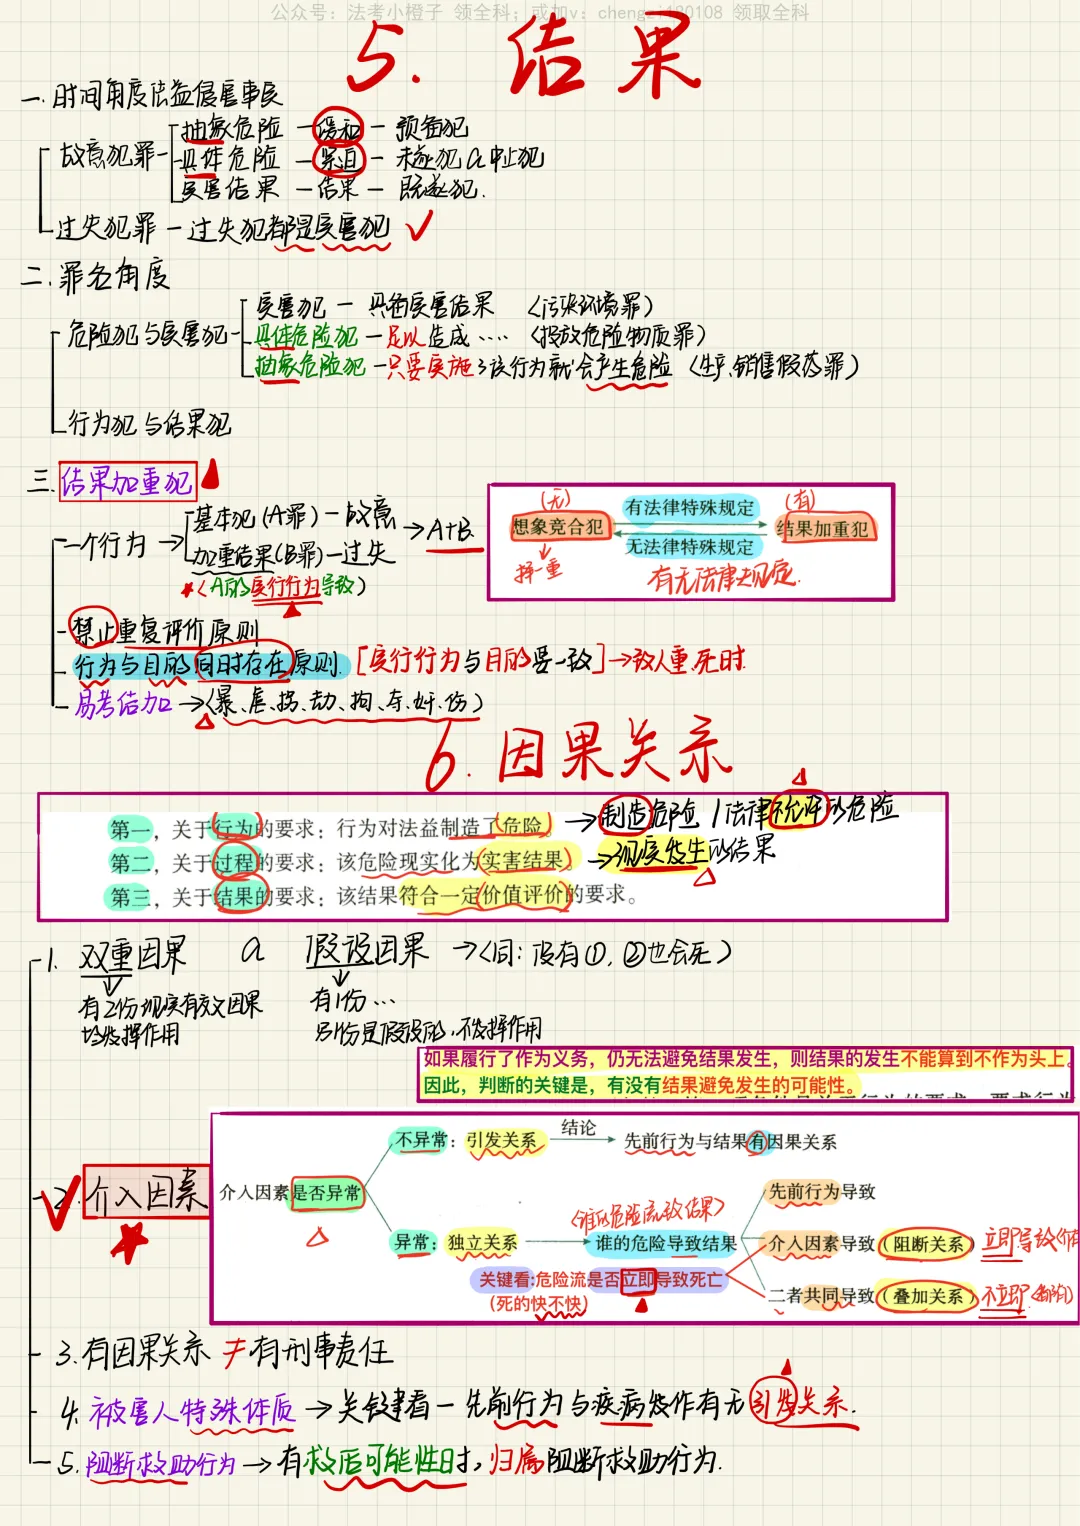 公众号：法考小橙子 领全科；或加v：chengzi180108 领取全科
5. 结果
一.时间角度法益侵害事实
故意犯罪
抽象危险 — 缓和 — 预备犯
具体危险 — 紧迫 — 未遂犯a中止犯
实害结果 — 结果 — 既遂犯.
过失犯罪 — 过失犯都是实害犯
二.罪名角度
危险犯与实害犯
实害犯 — 具备实害结果 〈污染环境罪〉
具体危险犯 — 足以造成…… 〈投放危险物质罪〉
抽象危险犯 — 只要实施了该行为就会产生危险 〈生产、销售假药罪〉
行为犯与结果犯
三.结果加重犯
一个行为 → 基本犯(A罪) — 故意
加重结果(B罪) — 过失
→ A+B.
〈A的实行行为导致〉
(无) 有法律特殊规定 (有)
想象竞合犯 结果加重犯
无法律特殊规定
择一重 有无法律规定.
禁止重复评价原则
行为与目的同时存在原则. [实行行为与目的要一致] → 致人重.死时.
易考结加 → 〈暴、虐、拐、劫、拘、夺、奸、伤〉
6. 因果关系
第一，关于行为的要求：行为对法益制造了危险。 → 制造危险 / 法律不允许的危险
第二，关于过程的要求：该危险现实化为实害结果。 → 现实发生的结果
第三，关于结果的要求：该结果符合一定价值评价的要求。
1. 双重因果 a 假设因果 → 〈同：没有①，②也会死〉
有2份现实有效因果
均发挥作用
有1份…
另1份是假设的，不发挥作用
如果履行了作为义务，仍无法避免结果发生，则结果的发生不能算到不作为头上。
因此，判断的关键是，有没有结果避免发生的可能性。
2. 介入因素
介入因素是否异常
不异常：引发关系 结论 先前行为与结果有因果关系
异常：独立关系 谁的危险导致结果
〈谁的危险流致结果〉
先前行为导致
介入因素导致（阻断关系） 立即导致
二者共同导致（叠加关系） 不立即
关键看:危险流是否立即导致死亡
(死的快不快)
3. 有因果关系 ≠ 有刑事责任
4. 被害人特殊体质 → 关键看 — 先前行为与疾病发作有无引发关系.
5. 阻断救助行为 → 有救活可能性时，归属阻断救助行为.